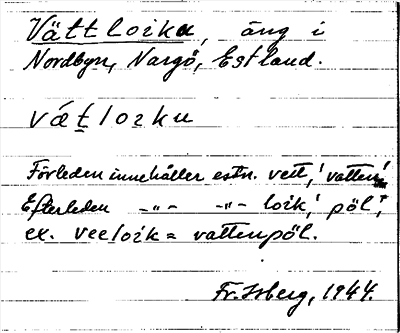 Vättloiku, äng i
Nordbyn, Nargö, Estland.
vát̲loiku
Förleden innehåller estn. vett, 'vatten',
Efterleden -"- -"- loik, 'pöl',
ex. veeloik = vattenpöl.
Fr. Isberg, 1944.